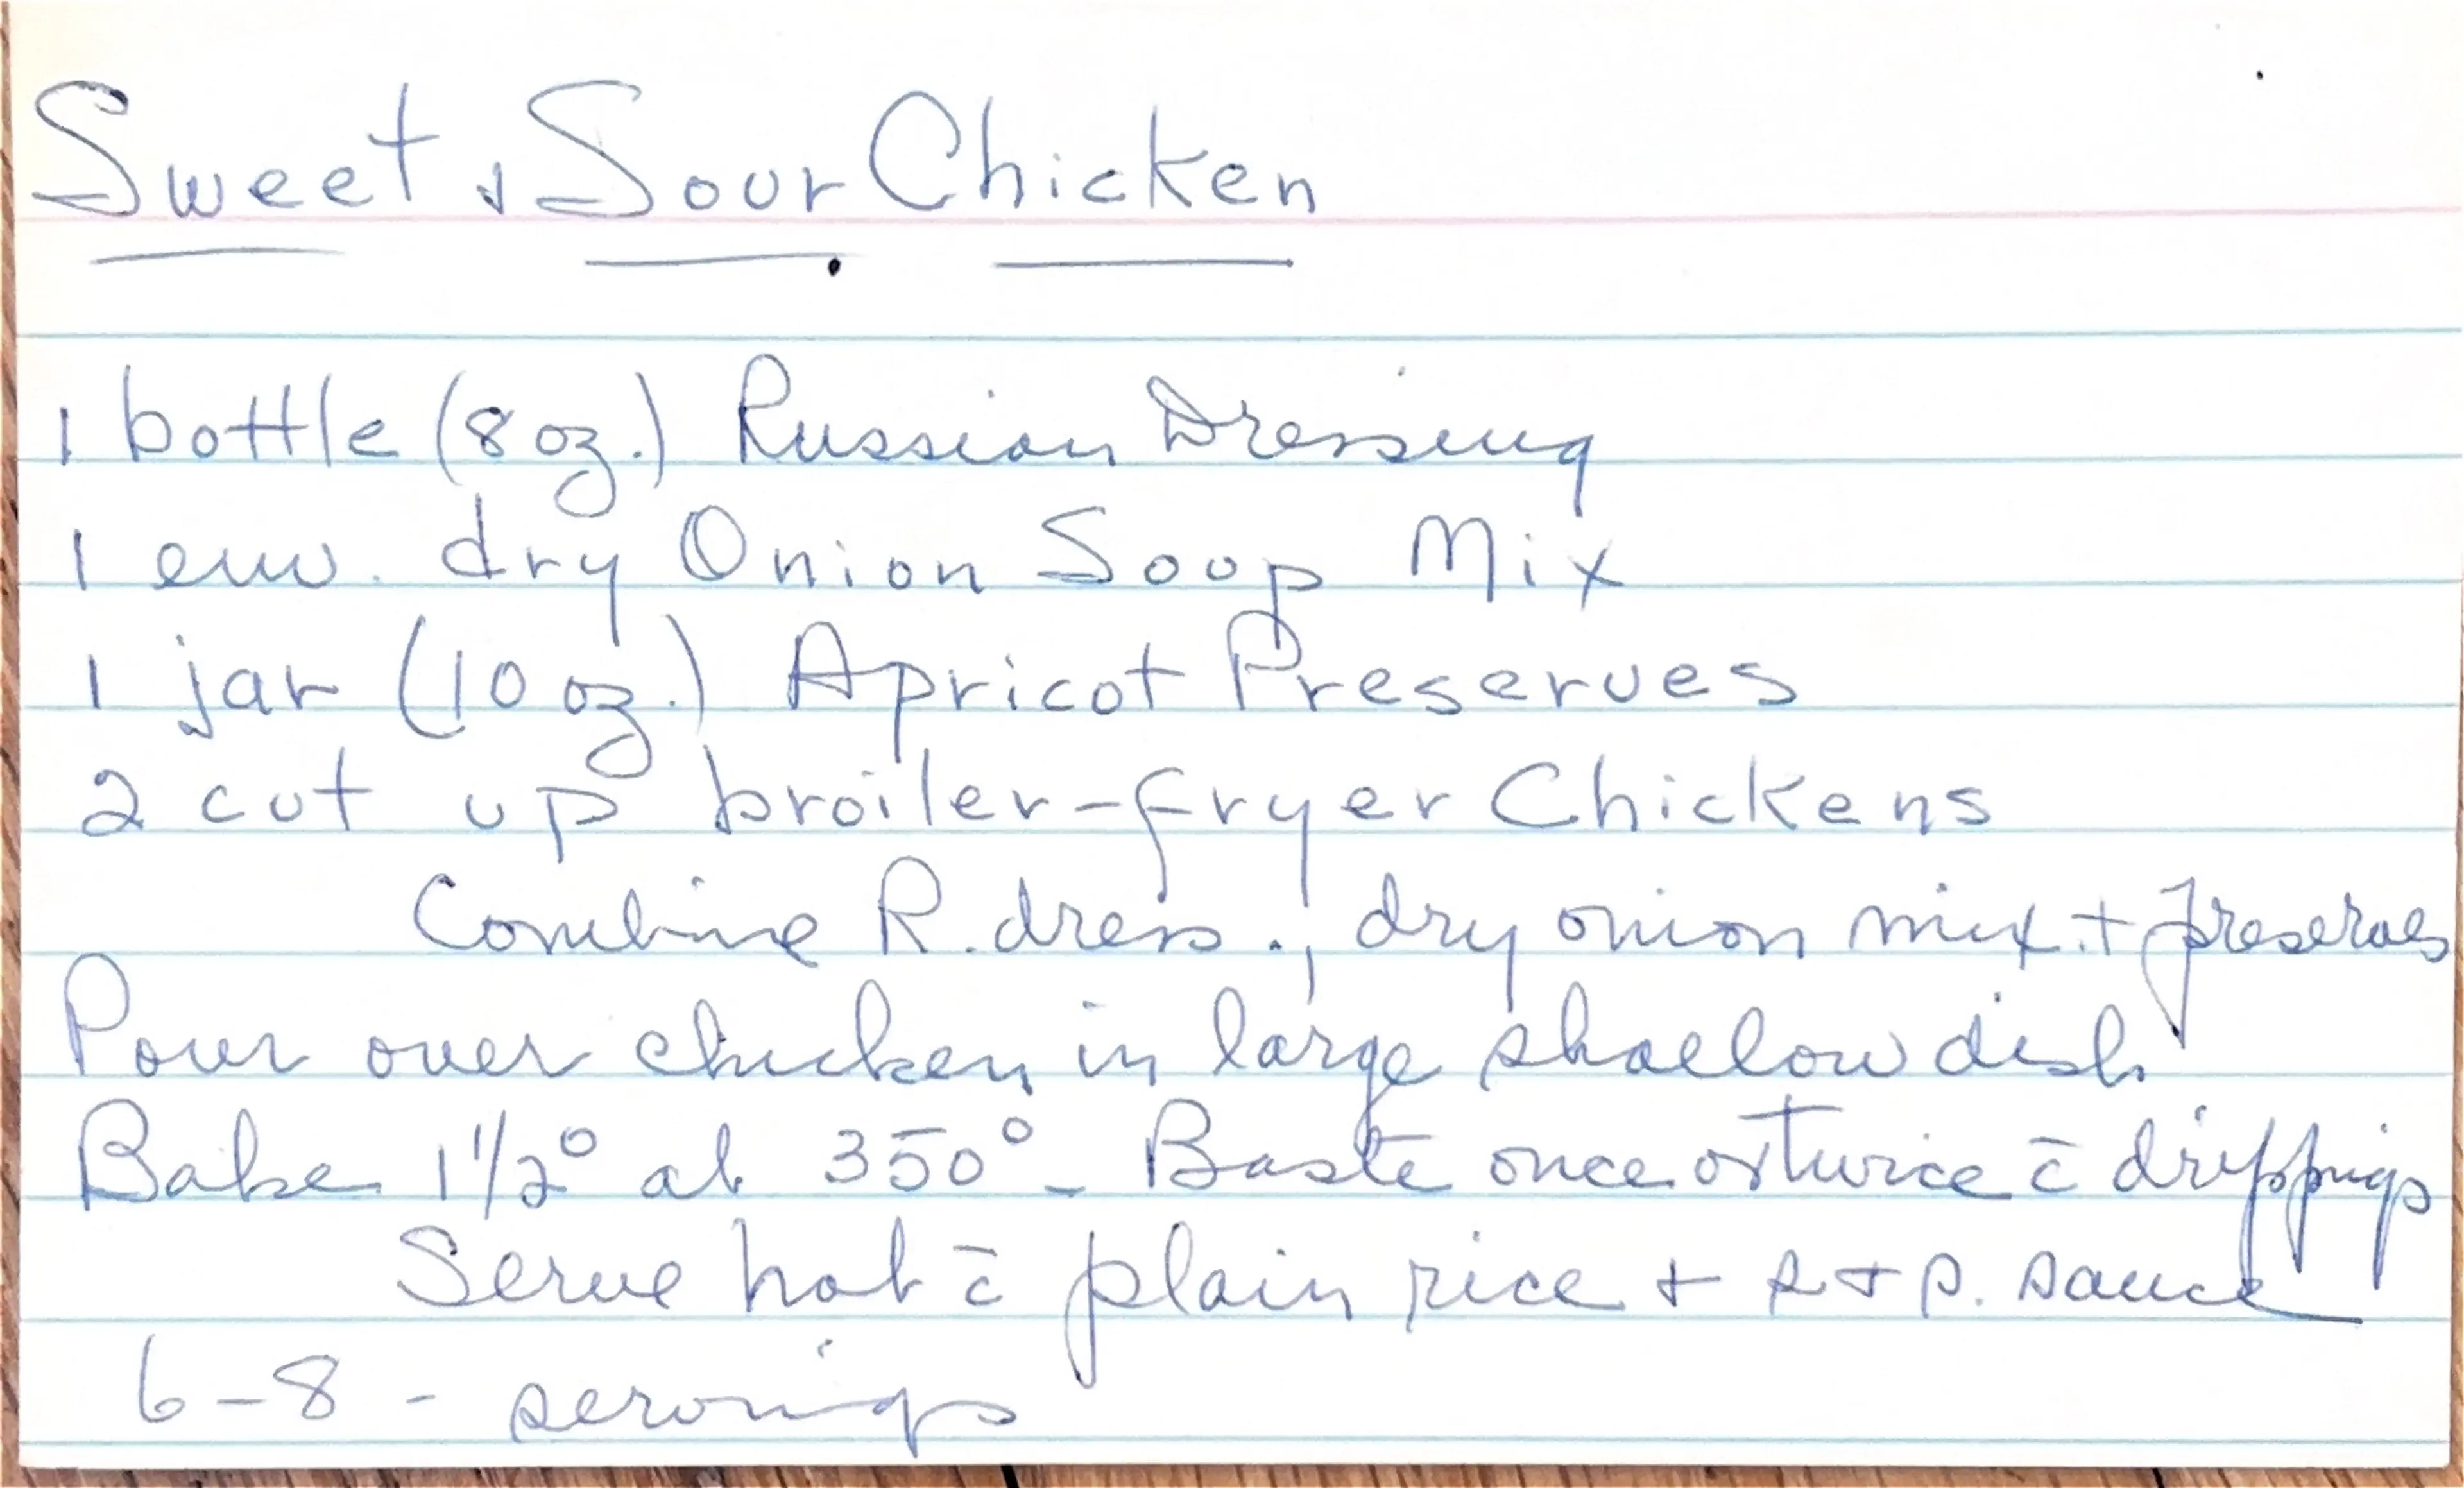 Sweet & Sour Chicken
1 bottle (8 oz.) Russian Dressing
1 env. dry Onion Soup Mix
1 jar (10 oz.) Apricot Preserves
2 cut up broiler-fryer Chickens
Combine R. dress., dry onion mix. + preserves
Pour over chicken in large shallow dish
Bake 1 1/2° at 350° - Baste once or twice c̄ drippings
Serve hot c̄ plain rice + s + s. sauce
6-8 - servings